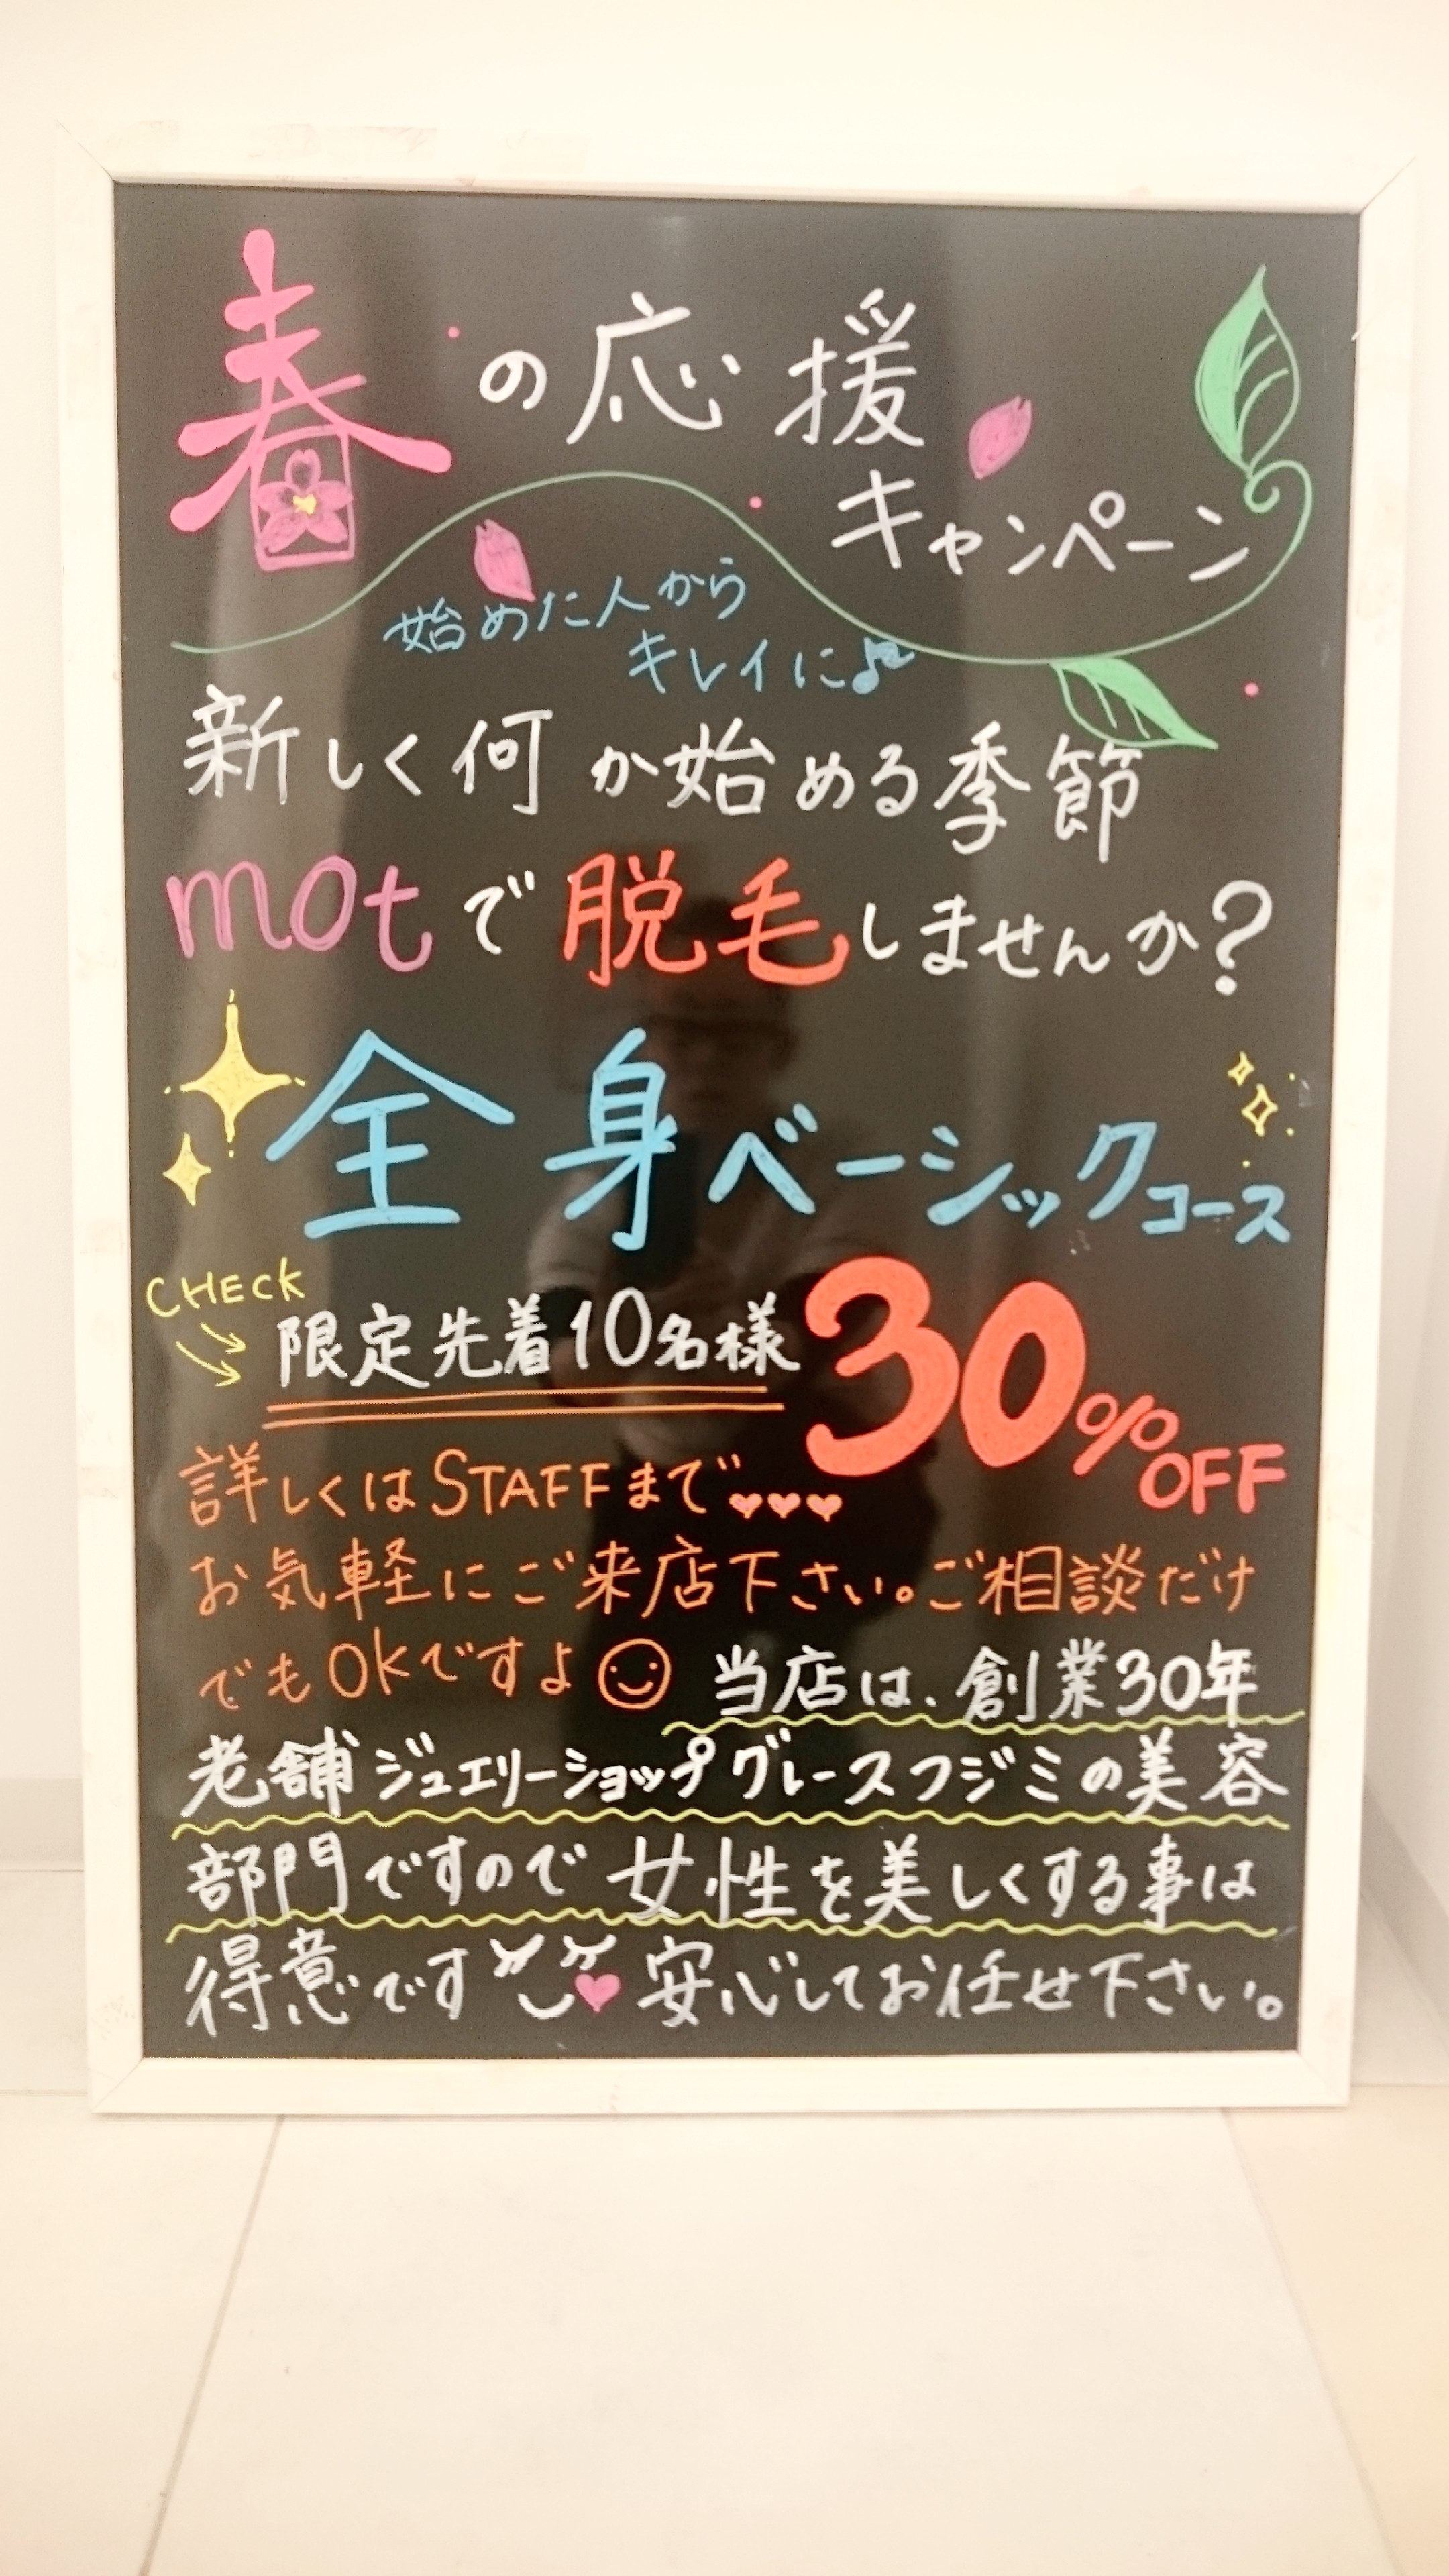 春の応援
キャンペーン
始めた人から
キレイに♪
新しく何か始める季節
motで脱毛しませんか?
全身ベーシックコース
CHECK
限定先着10名様
30%OFF
詳しくはSTAFFまで
お気軽にご来店下さい。ご相談だけ
でもOKですよ
当店は、創業30年
老舗ジュエリーショップグレースフジミの美容
部門ですので女性を美しくする事は
得意です 安心してお任せ下さい。